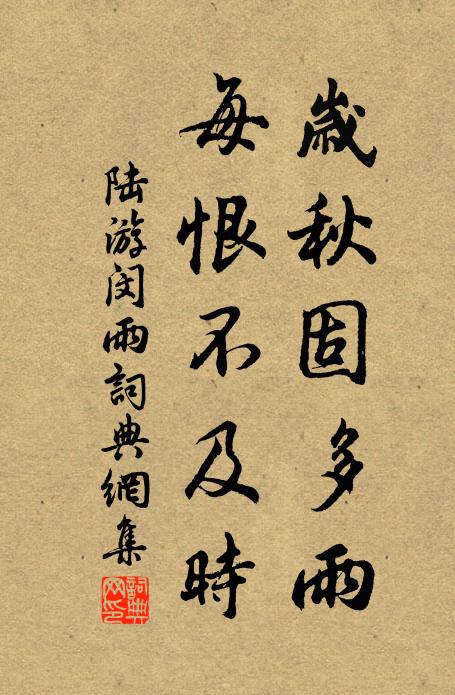 歲秋固多雨
每恨不及時
陆游闵雨詞典網集
詞典網印